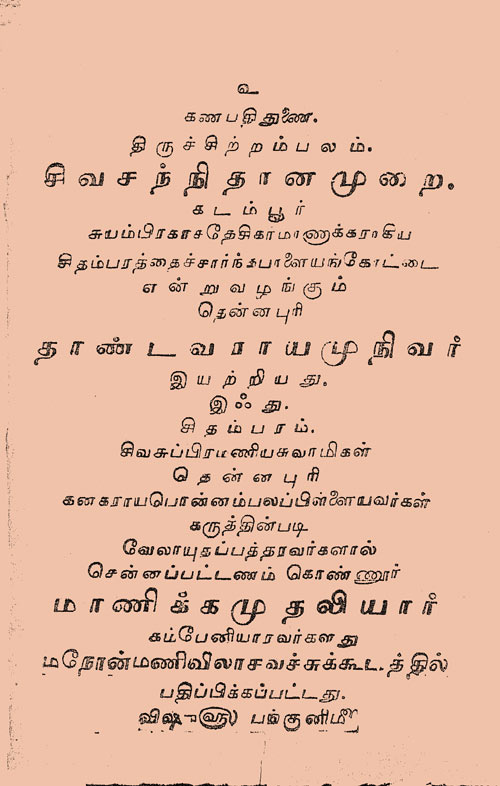 உ
கணபதிதுணை.
திருச்சிற்றம்பலம்.
சிவசந்நிதானமுறை.
கடம்பூர்
சுயம்பிரகாசதேசிகர்மாணாக்கராகிய
சிதம்பரத்தைச்சார்ந்தபாளையங்கோட்டை
என்றுவழங்கும்
தென்னபுரி
தாண்டவராயமுநிவர்
இயற்றியது.
இஃது.
சிதம்பரம்.
சிவசுப்பிரமணியசுவாமிகள்
தென்னபுரி
கனகராயபொன்னம்பலப்பிள்ளையவர்கள்
கருத்தின்படி
வேலாயுதப்பத்தரவர்களால்
சென்னப்பட்டணம் கொண்ணூர்
மாணிக்கமுதலியார்
கம்பேனியாரவர்களது
மநோன்மணிவிலாசவச்சுக்கூடத்தில்
பதிப்பிக்கப்பட்டது.
விஷு௵ பங்குனி௴